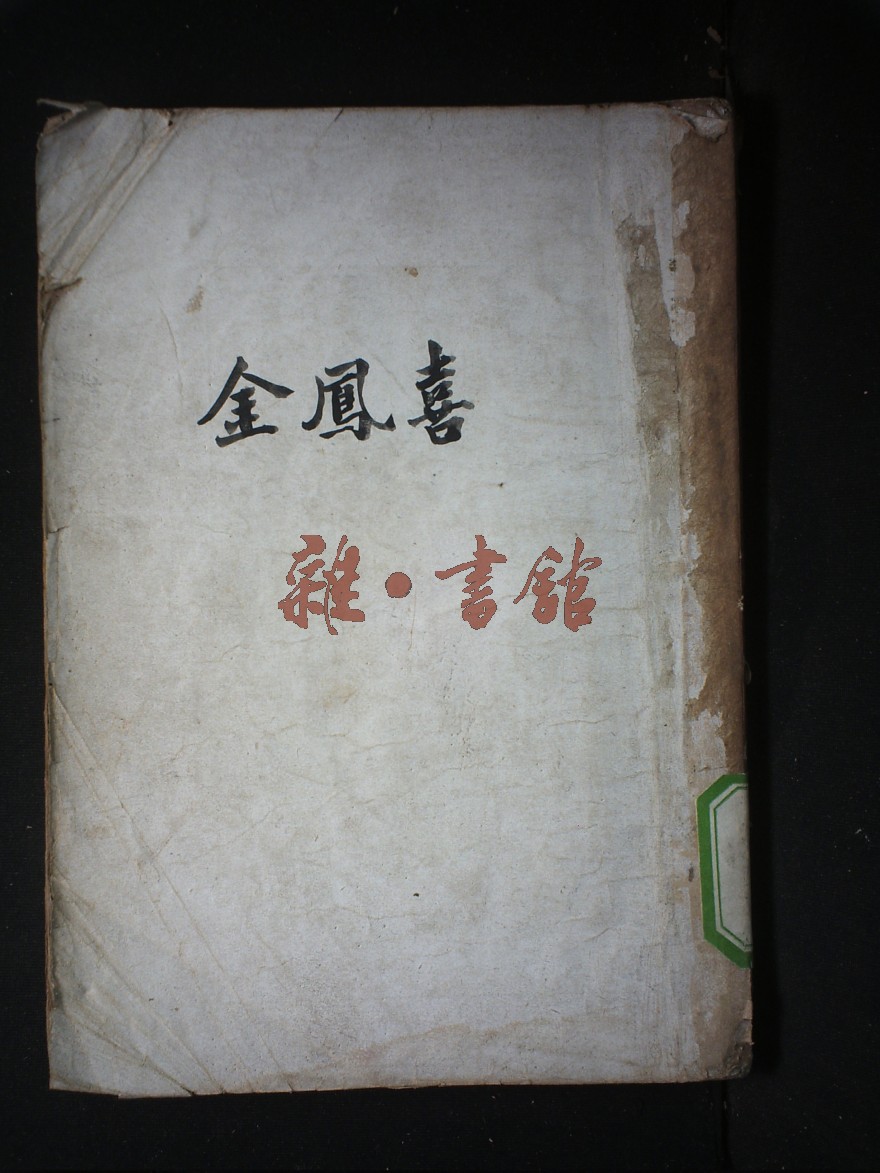 金鳳喜
雜·書館